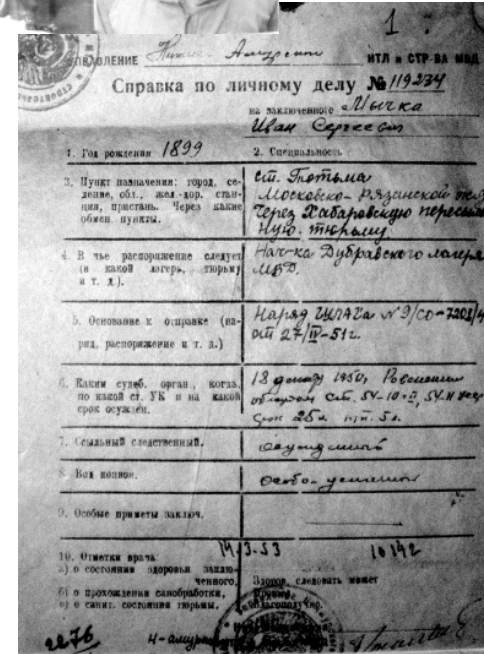 1.
Нижне-Амурский ИТЛ и СТР-ВА МВД
Справка по личному делу № 119234
на заключенного Мычка
Иван Сергеевич
1. Год рождения 1899
2. Специальность
3. Пункт назначения: город, се-
ление, обл., жел-дор. стан-
ция, пристань. Через какие
обмен. пункты.
ст. Потьма
Московско-Рязанской ж.д.
Через Хабаровскую пересыль
ную тюрьму
4. В чье распоряжение следует
(в какой лагерь, тюрьму
и т. д.).
Нач-ка Дубравского лагеря
МВД.
5. Основание к отправке (на-
ряд, распоряжение и т. д.)
Наряд ГУЛАГа № 9/со-
от 27/IV-51г.
6. Каким судеб. орган., когда,
по какой ст. УК и на какой
срок осужден.
18 1950, Ровенским
ст. 54-10
срок 25л. п.п. 5л.
7. Ссыльный следственный.
осужденный
8. Вид конвоя.
особо-усиленный
9. Особые приметы заключ.
10. Отметки врача:
14/3-53
10142
а) о состоянии здоровья заклю-
ченного.
Здоров, следовать может
б) о прохождении санобработки,
в) о санит. состоянии тюрьмы.
2276
Н-амур